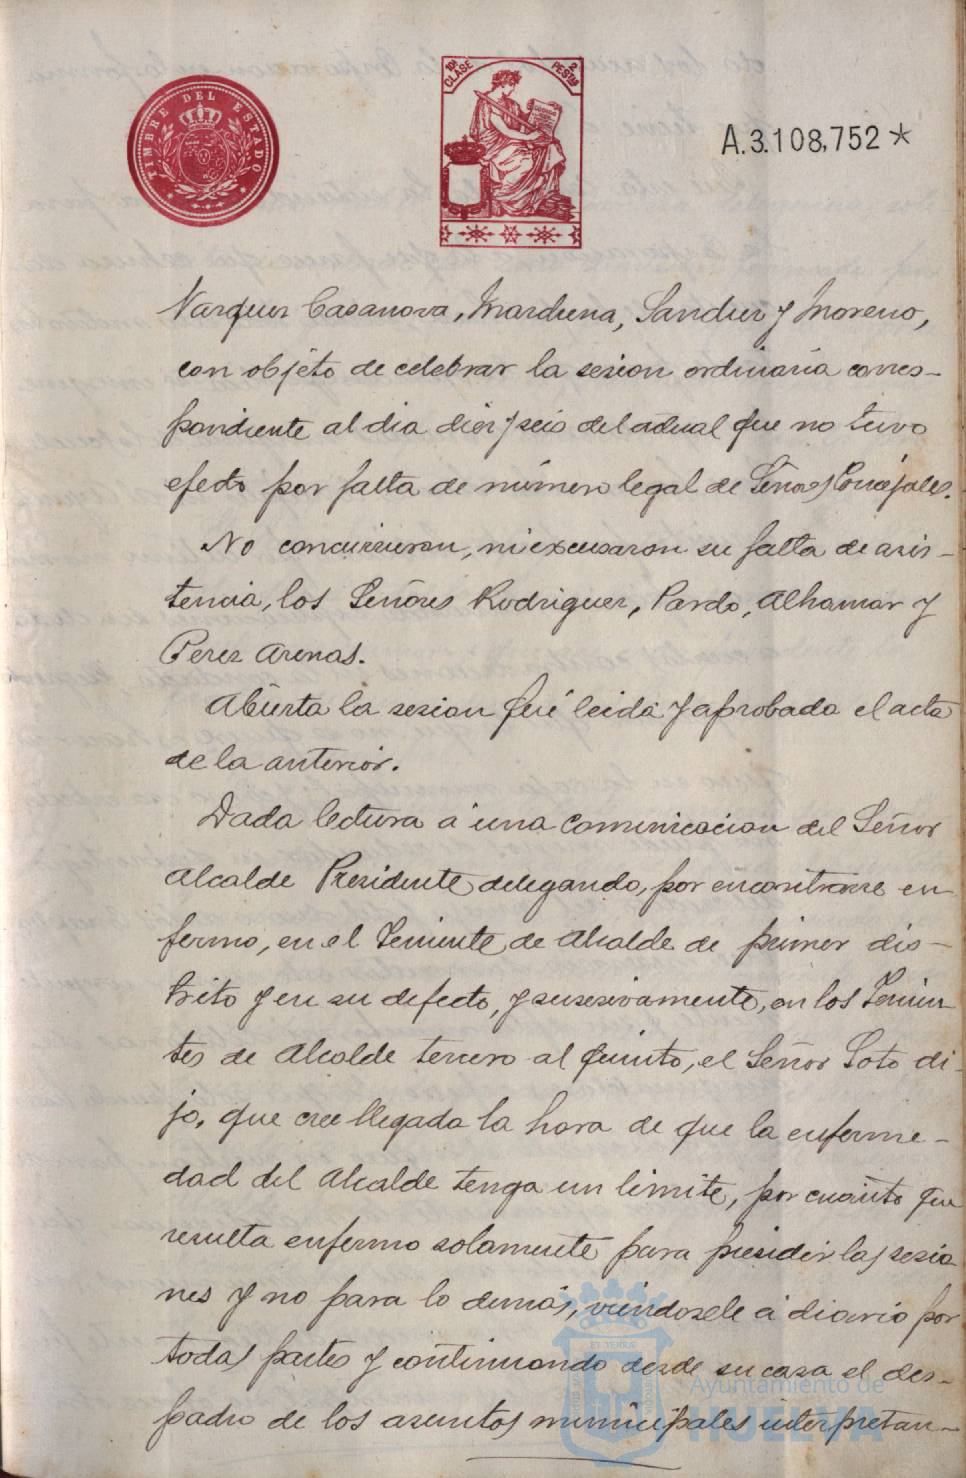 TIMBRE DEL ESTADO
10ª CLASE
2 PESTAS
A.3.108,752*
Vazquez Casanova, Mardiena, Sanchez y Moreno,
con objeto de celebrar la sesion ordinaria corres-
pondiente al dia diez y seis del actual que no tuvo
efecto por falta de número legal de Señores Concejales.
No concurrieron, ni excusaron su falta de asis-
tencia, los Señores Rodriguez, Pardo, Alhamar y
Perez Arenas.
Abierta la sesion fué leida y aprobada el acta
de la anterior.
Dada lectura á una comunicacion del Señor
Alcalde Presidente delegando, por encontrarse en-
fermo, en el Teniente de Alcalde de primer dis-
trito y en su defecto, y sucesivamente, en los Tenien-
tes de Alcalde tercero al quinto, el Señor Soto di-
jo, que cree llegada la hora de que la enferme-
dad del Alcalde tenga un limite, por cuanto que
resulta enfermo solamente para presidir las sesio
nes y no para lo demás, viendosele á diario por
todas partes y continuando desde su casa el des-
pacho de los asuntos municipales interpretan-
Ayuntamiento de
HUELVA